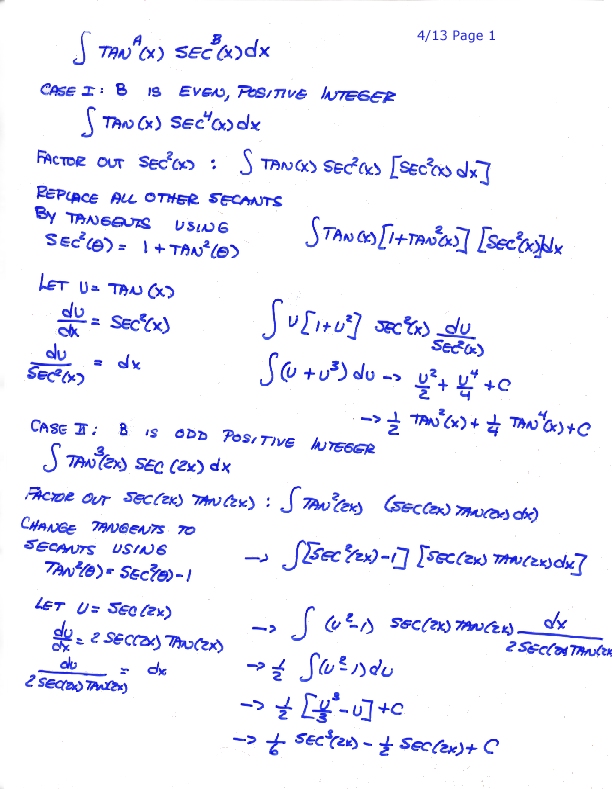 4/13 Page 1
∫ TAN^A(x) SEC^B(x)dx
CASE I: B IS EVEN, POSITIVE INTEGER
∫ TAN(x) SEC⁴(x)dx
FACTOR OUT SEC²(x) : ∫ TAN(x) SEC²(x) [SEC²(x)dx]
REPLACE ALL OTHER SECANTS
BY TANGENTS USING
SEC²(θ) = 1 + TAN²(θ)
∫TAN(x)[1+TAN²(x)] [SEC²(x)]dx
LET U = TAN(x)
du/dx = SEC²(x)
du/SEC²(x) = dx
∫ U[1+U²] SEC²(x) du/SEC²(x)
∫(U + U³) du -> U²/2 + U⁴/4 + C
-> 1/2 TAN²(x) + 1/4 TAN⁴(x) + C
CASE II: B IS ODD POSITIVE INTEGER
∫ TAN³(2x) SEC(2x) dx
FACTOR OUT SEC(2x) TAN(2x) : ∫ TAN²(2x) (SEC(2x) TAN(2x) dx)
CHANGE TANGENTS TO
SECANTS USING
TAN²(θ) = SEC²(θ) - 1
-> ∫[SEC²(2x)-1] [SEC(2x) TAN(2x)dx]
LET U = SEC(2x)
du/dx = 2 SEC(2x) TAN(2x)
du/2 SEC(2x) TAN(2x) = dx
-> ∫ (U²-1) SEC(2x) TAN(2x) dx/2 SEC(2x) TAN(2x
-> 1/2 ∫(U²-1)du
-> 1/2 [U³/3 - U] + C
-> 1/6 SEC³(2x) - 1/2 SEC(2x) + C